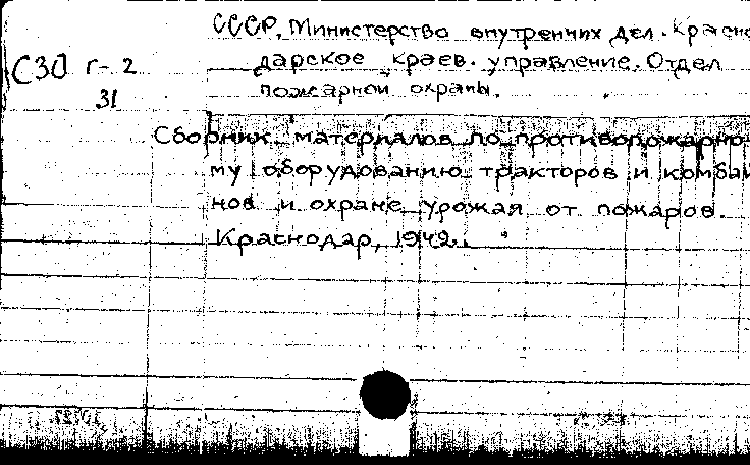 СССР. Министерство внутренних дел. Красно
дарское краев. управление. Отдел
пожарной охраны.
С30 г-2
31
Сборник материалов по противопожарно
му оборудованию тракторов и комбай
нов и охране урожая от пожаров.
Краснодар, 1949.